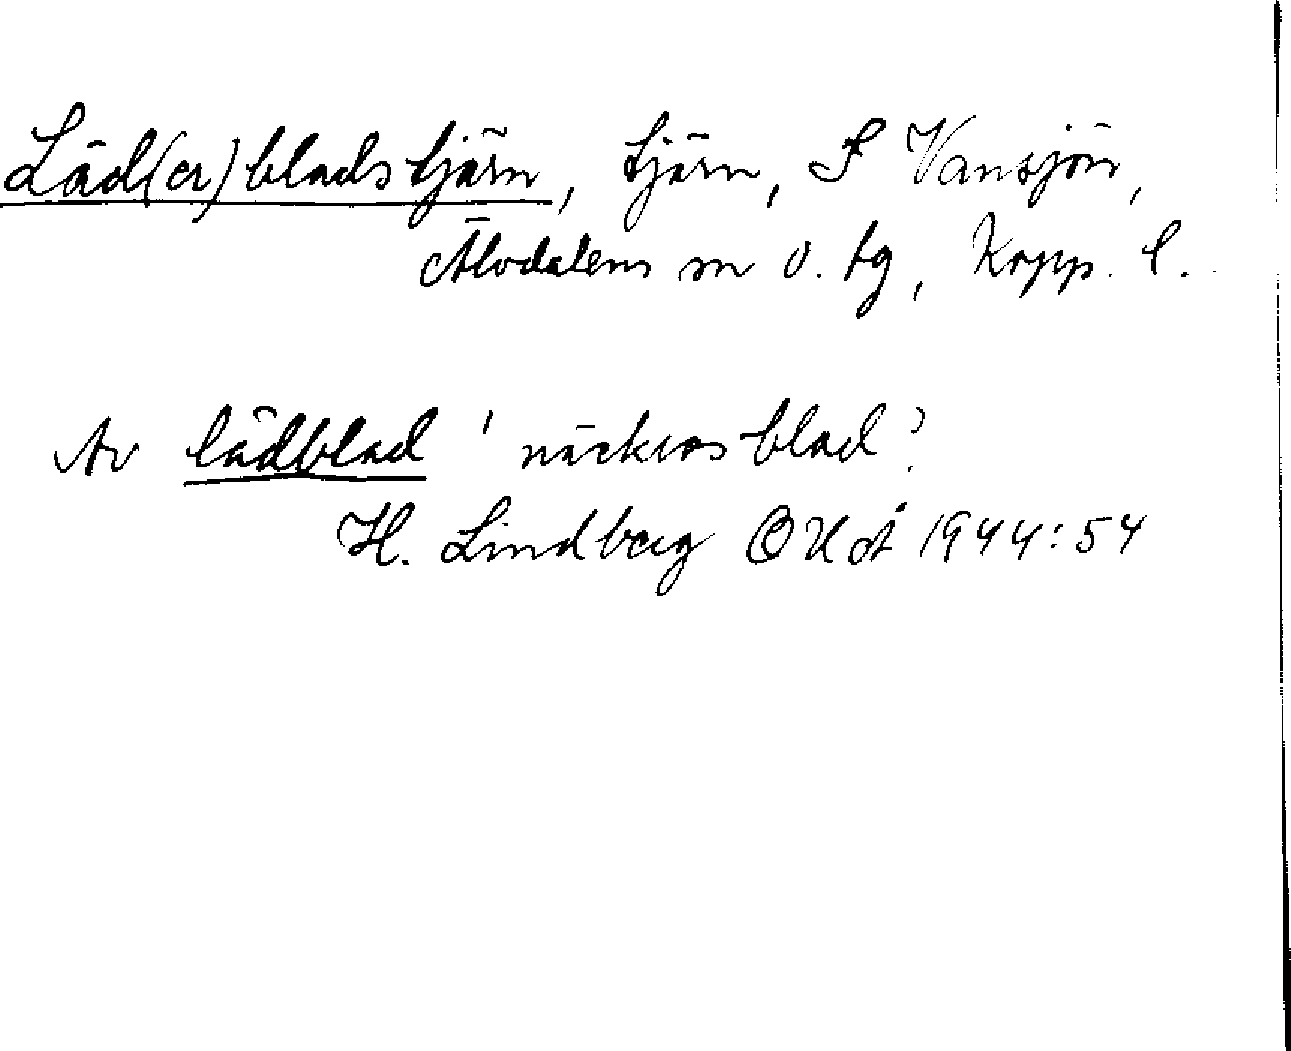 Läd(er)bladstjärn, tjärn, S Vansjön,
Älvdalens sn o. tg, Kopp. l.
Av lädblad 'näckrosblad'?
H. Lindberg OUÅ 1944:54